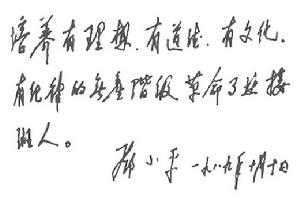 培养有理想、有道德、有文化、
有纪律的无產階级革命事业接
班人。
邓小平 一九八九年十月十日